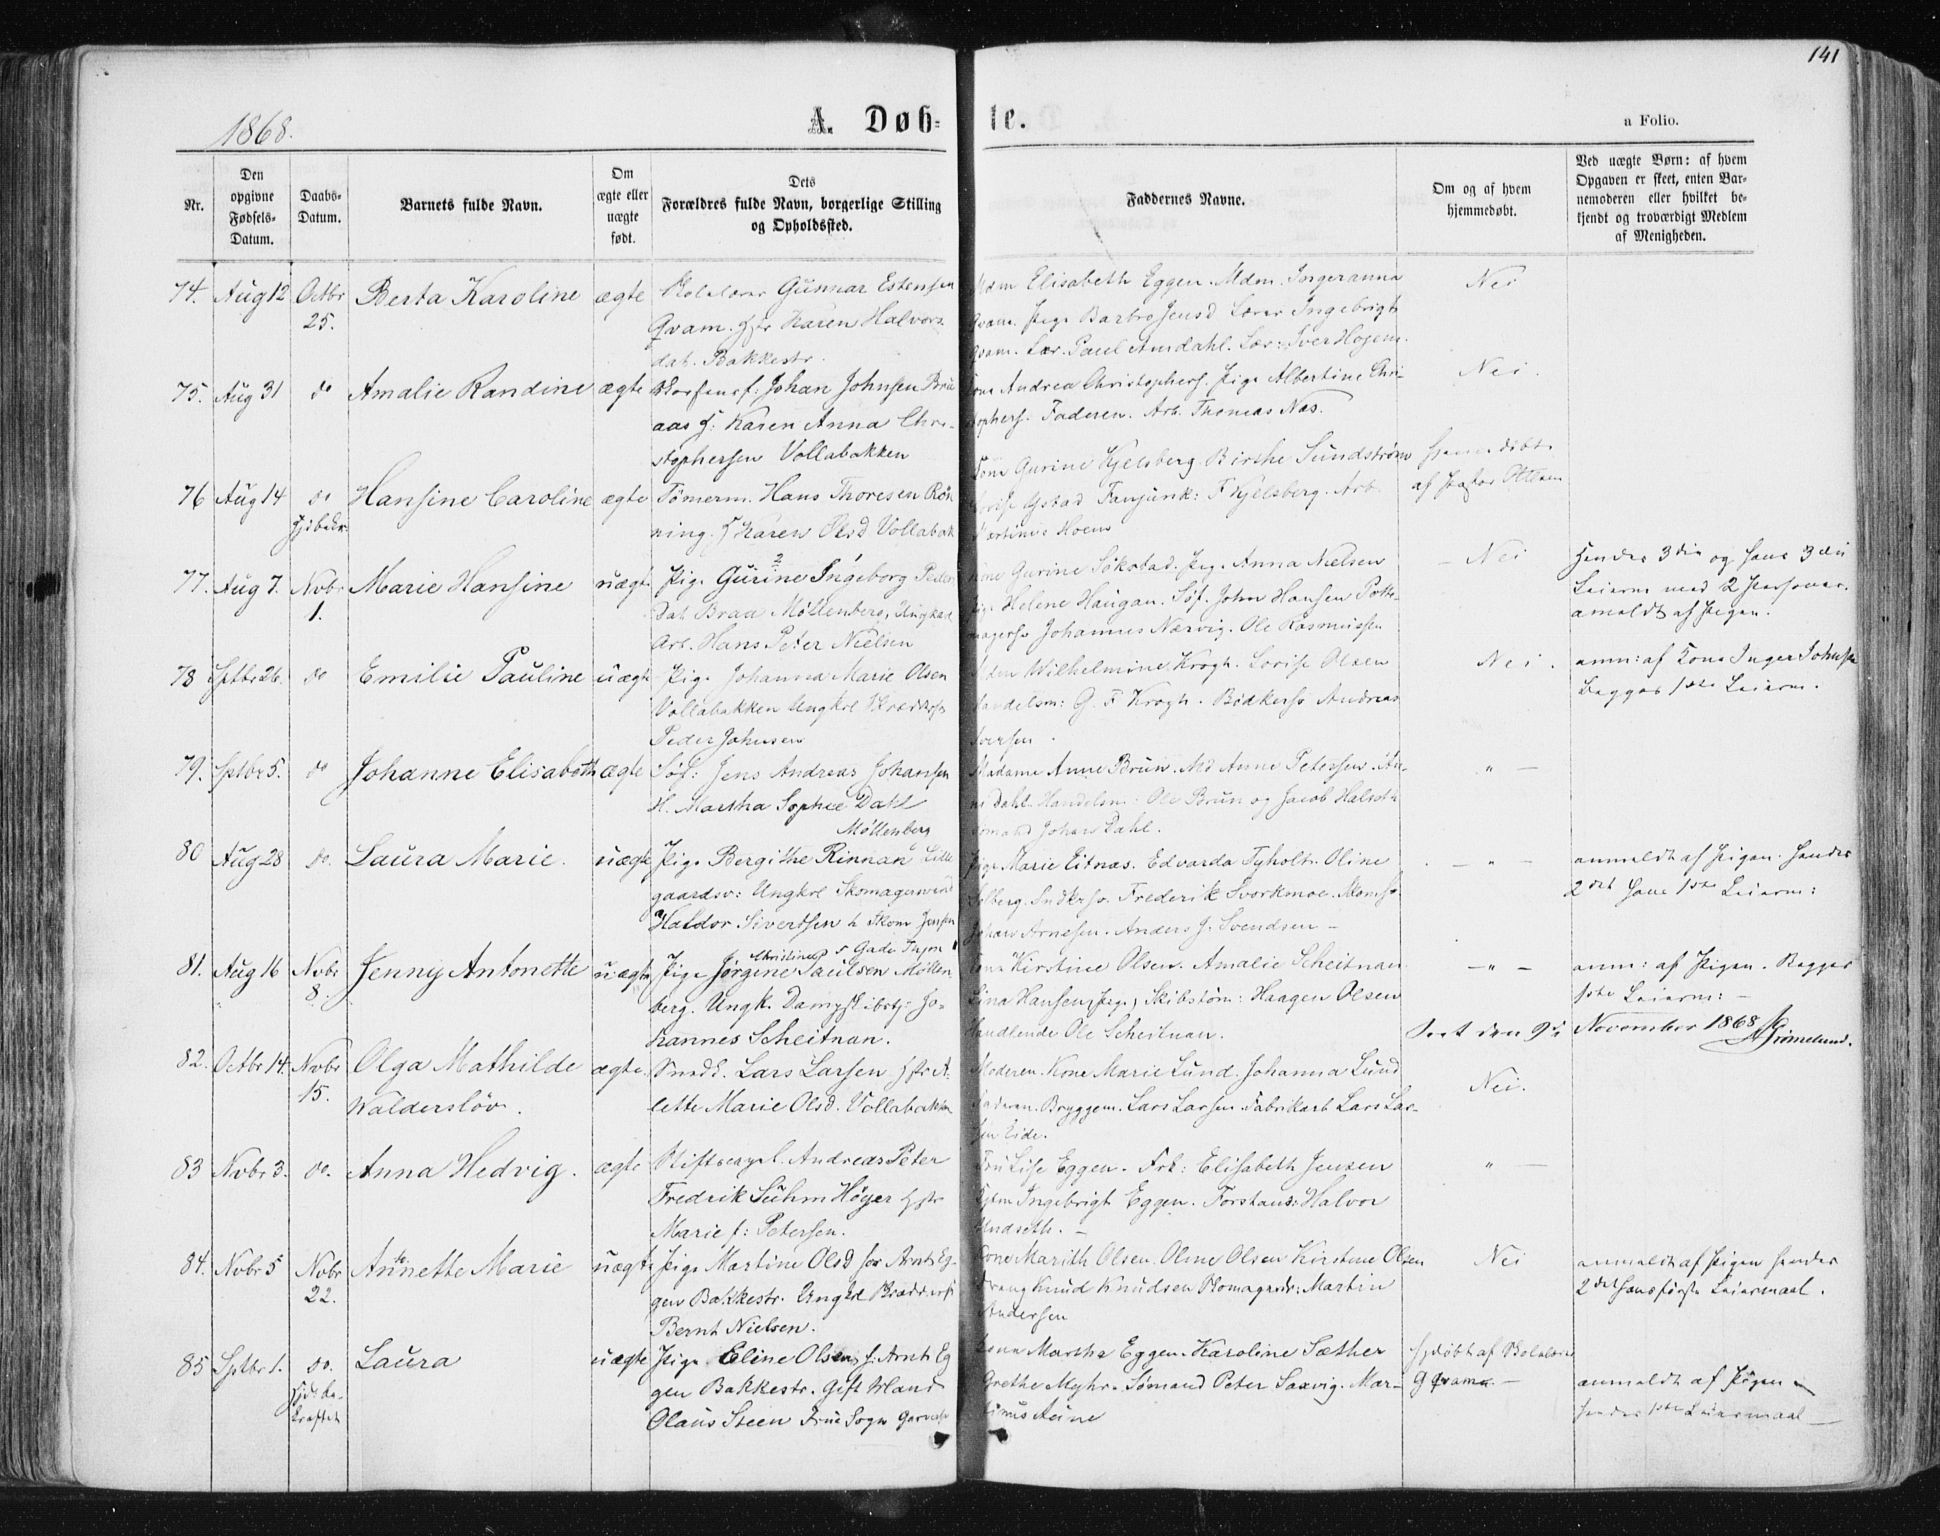 141
1868.
A. Døb-
te.
a Folio.
Nr.
Den opgivne Fødsels-Datum.
Daabs-Datum.
Barnets fulde Navn.
Om ægte eller uægte født.
Dets Forældres fulde Navn, borgerlige Stilling og Opholdssted.
Faddernes Navne.
Om og af hvem hjemmedøbt.
Ved uægte Børn: af hvem Opgaven er skeet, enten Barnemoderen eller hvilket bekjendt og troværdigt Medlem af Menigheden.
74. Aug 12 Octbr Berta Karoline ægte Gunnar Estensen Mdm Elisabeth Eggen. Mdm. Ingeranna Nei
25. Qvam. Karen Halvors Qvam. Pige Barbro Jensd Lærer Ingebrigt
dat. Bakkestr. Qvam. Lær. Paul Amdahl. Lær: Iver Hojem.
75. Aug 31 do Amalie Randine ægte Johan Johnsen Andrea Christophers. Pige Albertine Chri- Nei.
aas Karen Anna Chri- stophers. Faderen. Arb. Thomas Næs.
stophersen Vollabakken
76 Aug 14 do Hansine Caroline ægte Tømerm. Hans Thoresen Røn Kone Gurine Kjelsberg Birthe Sundstrøm Hjemmedøbt
ning. Karen Olsd Vollabak Ystad Fanjunk: F Kjelsberg. Arb. af Pastor Ottesen
Martinus Hoem
77. Aug 7. Novbr Marie Hansine uægte Pige Gurine Ingeborg Peder Gurine Søkstad. Pige Anna Nielsen - Nei Hendes 3die og hans 3die
1. Dat. Braa Møllenberg, Ungkarl Helene Haugan. Søf. John Hansen Potte- Leierm. med 2 Personer.
Arb. Hans Peter Nielsen magers Johannes Nærvig. Ole Rasmussen anmeldt af Pigen.
78 Sptbr 26. do Emilie Pauline uægte Pige Johanna Marie Olsen Mdm Wilhelmine Krogh. Lovise Olsen Nei. anm: af Kone Inger Johnsen
Vollabakken Ungkrl Handelsm: G. F Krogh. Bødkersv Andreas Begges 1ste Leierm.
Peder Johnsen Iversen.
79. Sptbr 5. do Johanne Elisabeth ægte Søf: Jens Andreas Johansen Madame Anne Brun. Md Anne Petersen. " -
H. Martha Sophie Dahl Dahl. Handelsm: Ole Brun og Jacob Halseth
Møllenberg Sømand Johan Dahl.
80 Aug 28 do. Laura Marie. uægte Pige Bergithe Rinnan Lille Pige Marie Eitnæs. Edvarda Tyholt. Oline - " - anmeldt af Pigen: Hendes
gaardsv: Ungkrl Skomagersvend Solberg. Sndkrsv. Frederik Svorkmoe. 2det hans 1ste Leierm:
Haldor Sivertsen h Skom Jensen Johan Arnesen. Anders J. Svendsen -
81. Aug 16 Nvbr Jenny Antonette uægte Pige Jørgine Christine Paulsen Møllen Kone Kirstine Olsen. Amalie Scheitnan - " - anm: af Pigen. Begges
8. berg. Ungk. Dampskibstj: Jo- Lina Hansen, Pige, Skibstøm: Haagen Olsen 1ste Leierm: -
hannes Scheitnan. Handlende Ole Scheitnan. den 9de November 1868
82. Octbr 14. Nvbr Olga Mathilde ægte Smedk. Lars Larsen A- Moderen. Kone Marie Lund. Johanna Lund Nei.
15. Waldersløv. lette Marie Olsd. Vollabakken Faderen. Bryggem. Lars Larsen. Fabrikarb Lars Lar-
sen Eide.
83 Nvbr 3. do. Anna Hedvig. ægte Stiftscapel. Andreas Peter Fru Lise Eggen. Frk: Elisabeth Jensen " -
Fredrik Suhm Høyer Ingebrigt Eggen. Forstaus: Halvor
Marie f: Petersen. Undseth. -
84. Nvbr 5 Nvbr Annette Marie uægte Pige Martine Olsd for Arnt Eg- Kone Marith Olsen. Oline Olsen Kirstine Olsen Nei anmeldt af Pigen hendes
22. gen Bakkestr. Ungkrl Dreng Knud Knudsen Martin 2det hans første Leiermaal.
Bernt Nielsen. Andersen
85 Sptbr 1. do. Laura uægte Pige Eline Olsen, f. Arnt Eg Kone Martha Eggen. Karoline Sæther Hjdøbt af
Hjdb be- gen Bakkestr. Gift Mand Grethe Myhr. Sømand Peter Saxvig. Mar- G Qvam - anmeldt af Pigen
kræftet Olaus Steen Frue Sogn tinus Aune hendes 1ste Leiermaal -